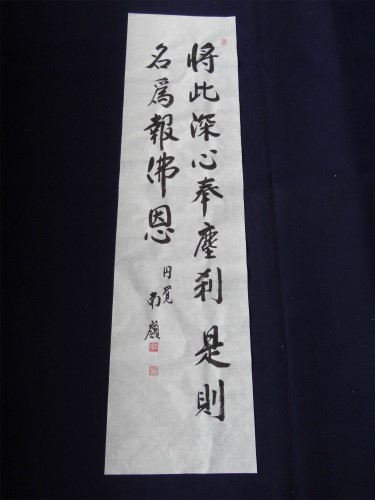 將此深心奉塵刹是則
名爲報佛恩
円覚
南嶺